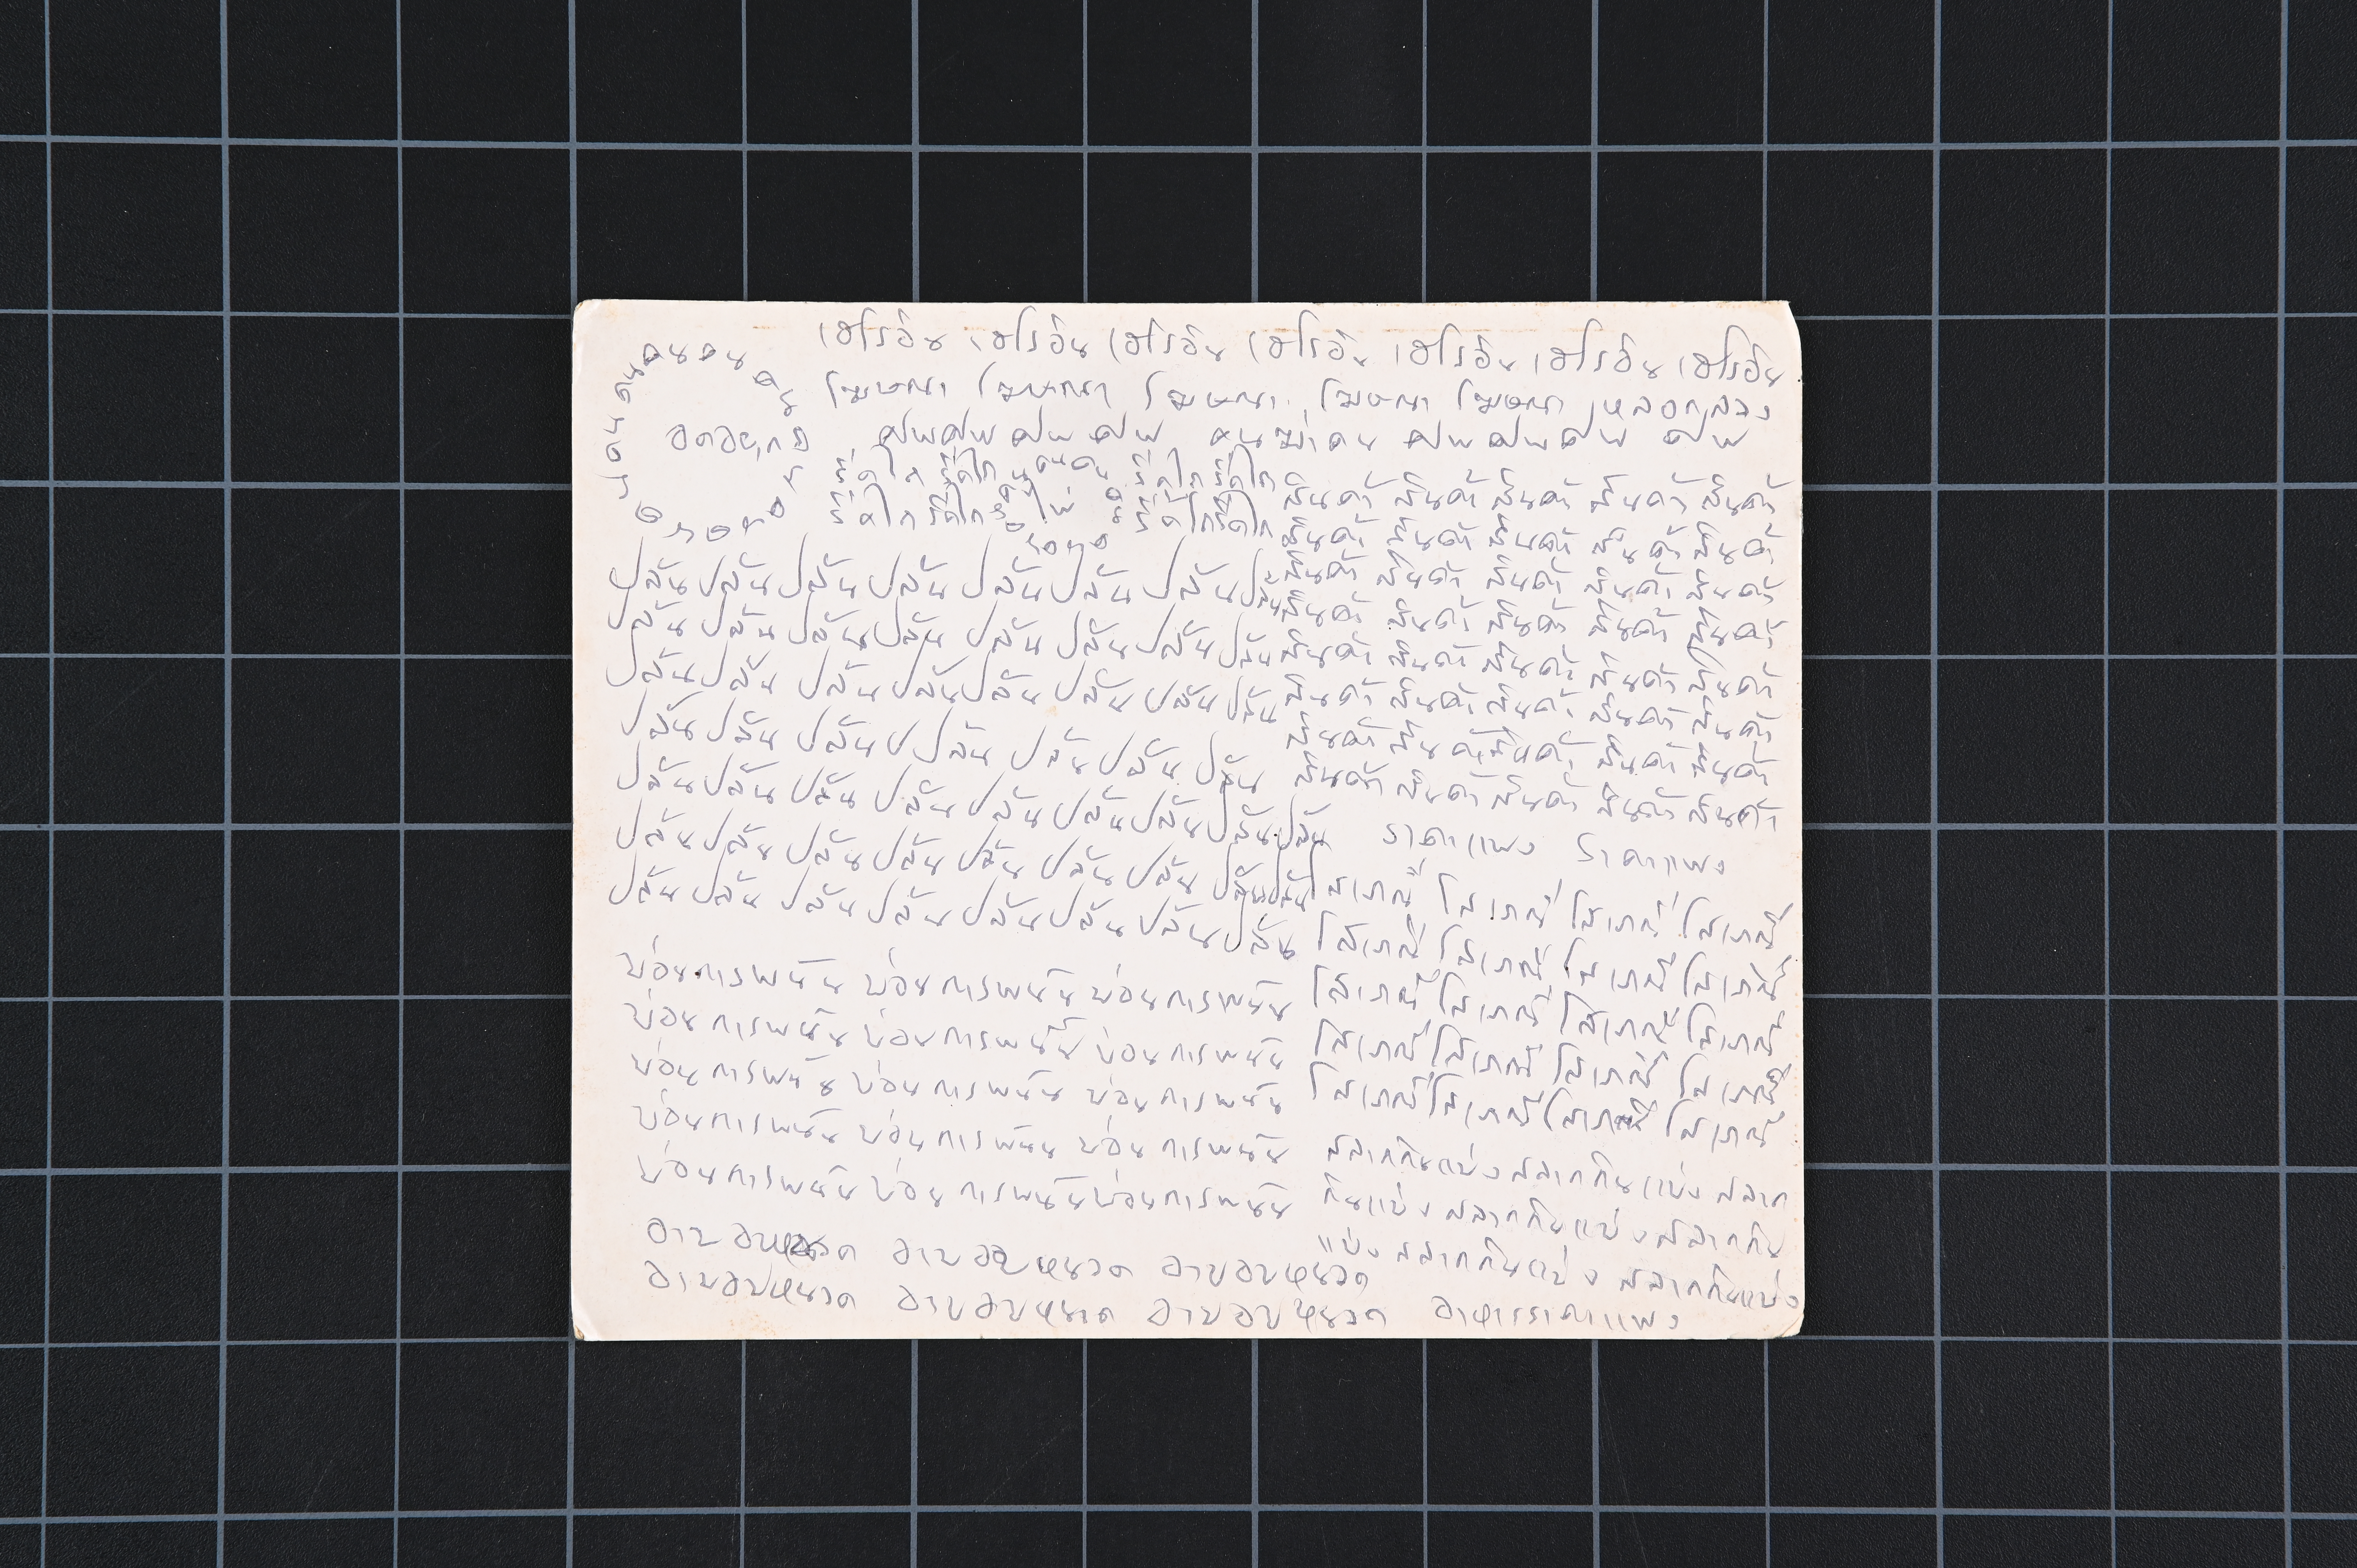 เฮโรอีน เฮโรอีน เฮโรอีน เฮโรอีน เฮโรอีน เฮโรอีน เฮโรอีน
คนคนคนคน
โฆษณา โฆษณา โฆษณา โฆษณา โฆษณา หลอกลวง
ศพศพ ศพ ศพ คนฆ่าคน ศพศพศพ ศพ
รีดไถ รีดไถ คนคนคน รีดไถรีดไถ สินค้า สินค้า สินค้า สินค้า สินค้า
รีดไถรีดไถ รีดไถรีดไถ สินค้า สินค้า สินค้า สินค้า สินค้า
ปล้น ปล้น ปล้น ปล้น ปล้น ปล้น ปล้น ปล้น สินค้า สินค้า สินค้า สินค้า สินค้า
ปล้น ปล้น ปล้น ปล้น ปล้น ปล้น ปล้น ปล้น สินค้า สินค้า สินค้า สินค้า สินค้า
สินค้า สินค้า สินค้า สินค้า สินค้า
ปล้น ปล้น ปล้น ปล้น ปล้น ปล้น ปล้น ปล้น สินค้า สินค้า สินค้า สินค้า สินค้า
ปล้น ปล้น ปล้น ปล้น ปล้น ปล้น ปล้น สินค้า สินค้า สินค้า สินค้า สินค้า
สินค้า สินค้า สินค้า สินค้า สินค้า
ปล้น ปล้น ปล้น ปล้น ปล้น ปล้น ปล้น ปล้น ปล้น ราคาแพง ราคาแพง
ปล้น ปล้น ปล้น ปล้น ปล้น ปล้น ปล้น ปล้น ปล้น โสเภณี โสเภณี โสเภณี โสเภณี
ปล้น ปล้น ปล้น ปล้น ปล้น ปล้น ปล้น ปล้น โสเภณี โสเภณี โสเภณี โสเภณี
บ่อนการพนัน บ่อนการพนัน บ่อนการพนัน โสเภณี โสเภณี โสเภณี โสเภณี
บ่อนการพนัน บ่อนการพนัน บ่อนการพนัน โสเภณี โสเภณี โสเภณี โสเภณี
บ่อนการพนัน บ่อนการพนัน บ่อนการพนัน โสเภณี โสเภณี โสเภณี โสเภณี
บ่อนการพนัน บ่อนการพนัน บ่อนการพนัน สลากกินแบ่ง สลากกินแบ่ง สลาก
บ่อนการพนัน บ่อนการพนัน บ่อนการพนัน กินแบ่ง สลากกินแบ่ง สลากกิน
อาบอบนวด อาบอบนวด อาบอบนวด แบ่ง สลากกินแบ่ง สลากกินแบ่ง
อาบอบนวด อาบอบนวด อาบอบนวด อาหารราคาแพง